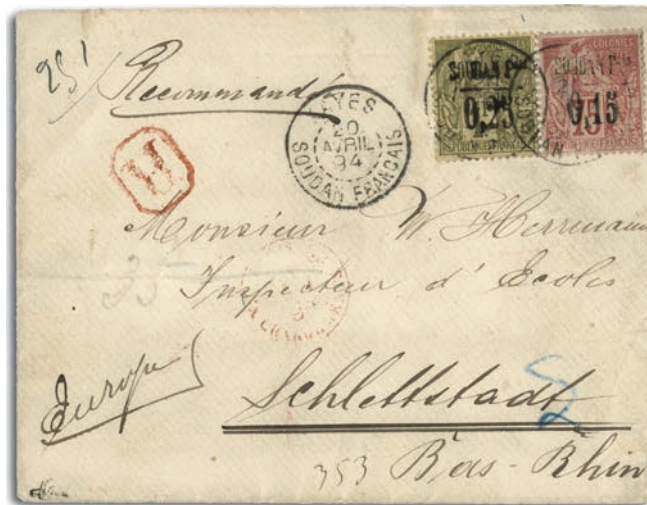 251
Recommandé
R
KAYES
20
AVRIL
94
SOUDAN FRANÇAIS
COLONIES
SOUDAN Fais
0,25
COLONIES
SOUDAN Fais
0,15
Monsieur W. Herrmann
Inspecteur d'Ecoles
35
Europe
Schlettstadt
2
353 Bas-Rhin